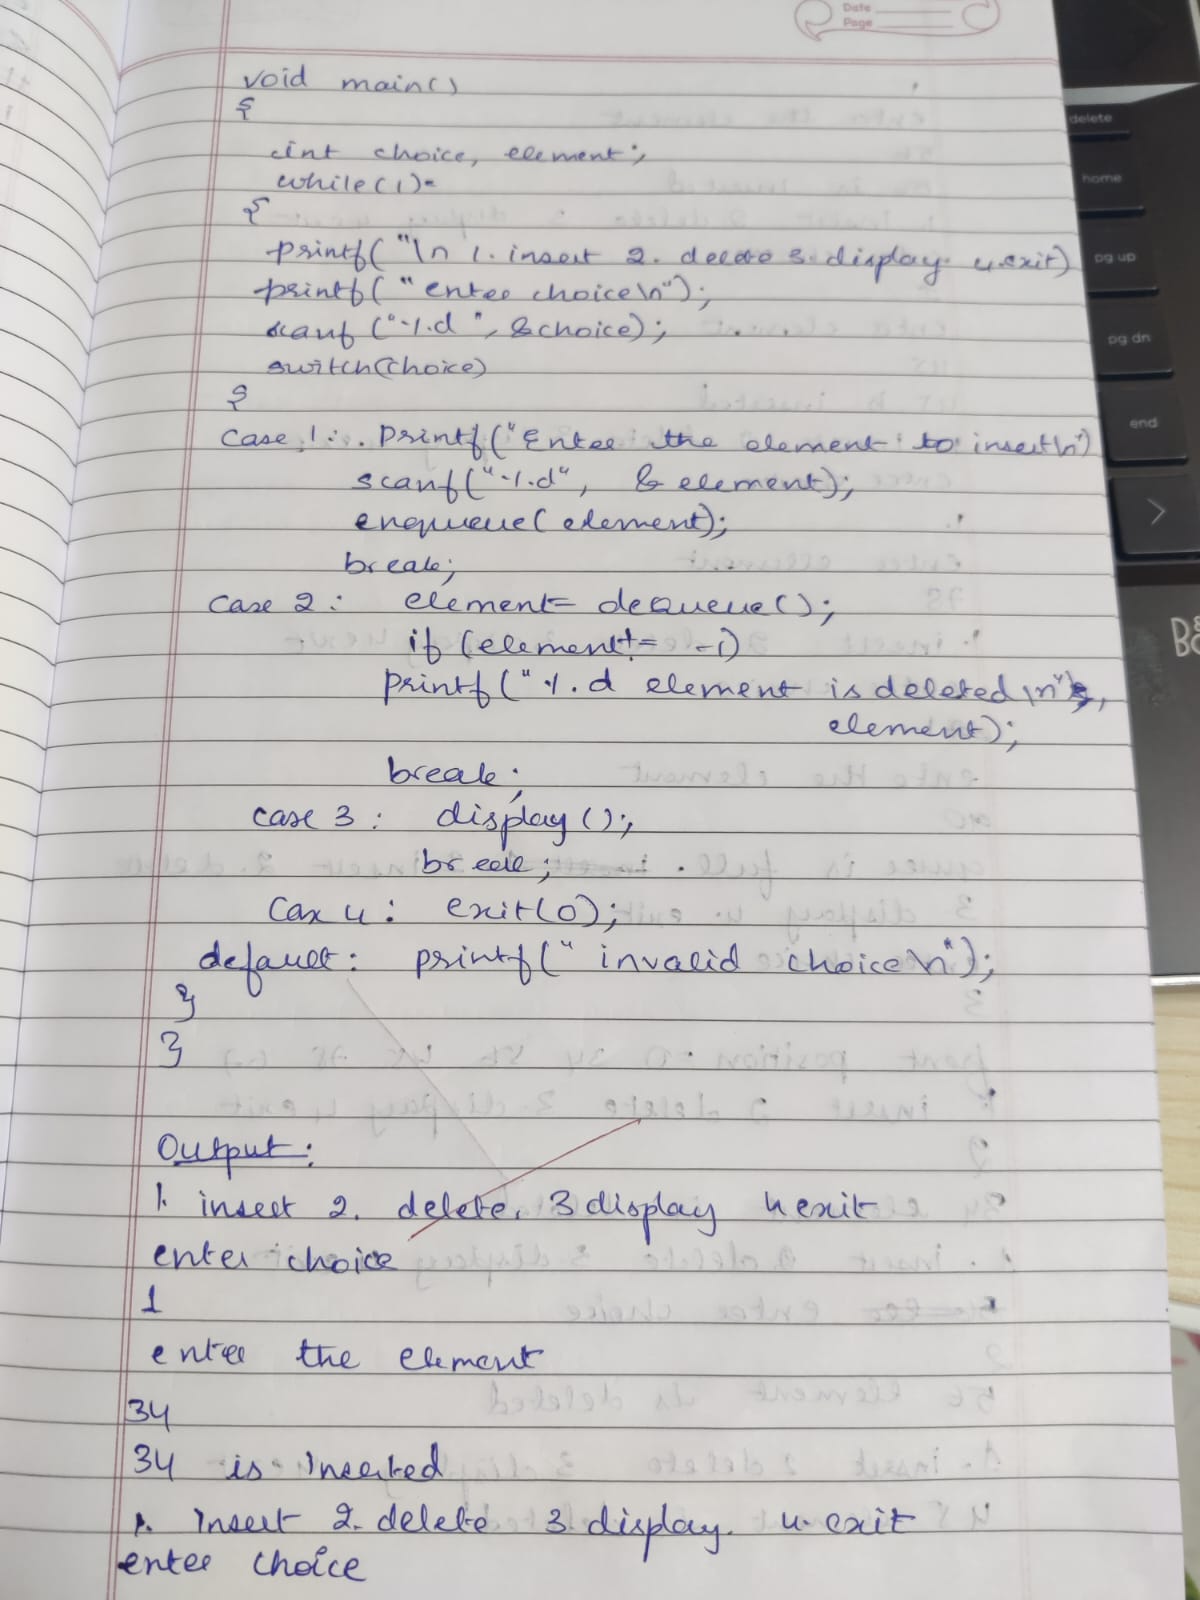 Date
Page
void main()
{
int choice, element;
while(1)
{
printf("\n 1. insert 2. delete 3. display 4. exit)
printf(" enter choice\n");
scanf ("%d", &choice);
switch(choice)
{
case 1: printf("Enter the element to insert\n")
scanf("%d", & element);
enqueue(element);
break;
case 2: element= dequeue();
if (element!= -1)
printf("%d element is deleted\n",
element);
break;
case 3: display();
break;
case 4: exit(0);
default: printf(" invalid choice\n");
}
}
Output:
1. insert 2. delete. 3 display 4 exit
enter choice
1
enter the element
34
34 is inserted
1. Insert 2. delete 3. display. 4. exit
enter choice
delete
home
pg up
pg dn
end